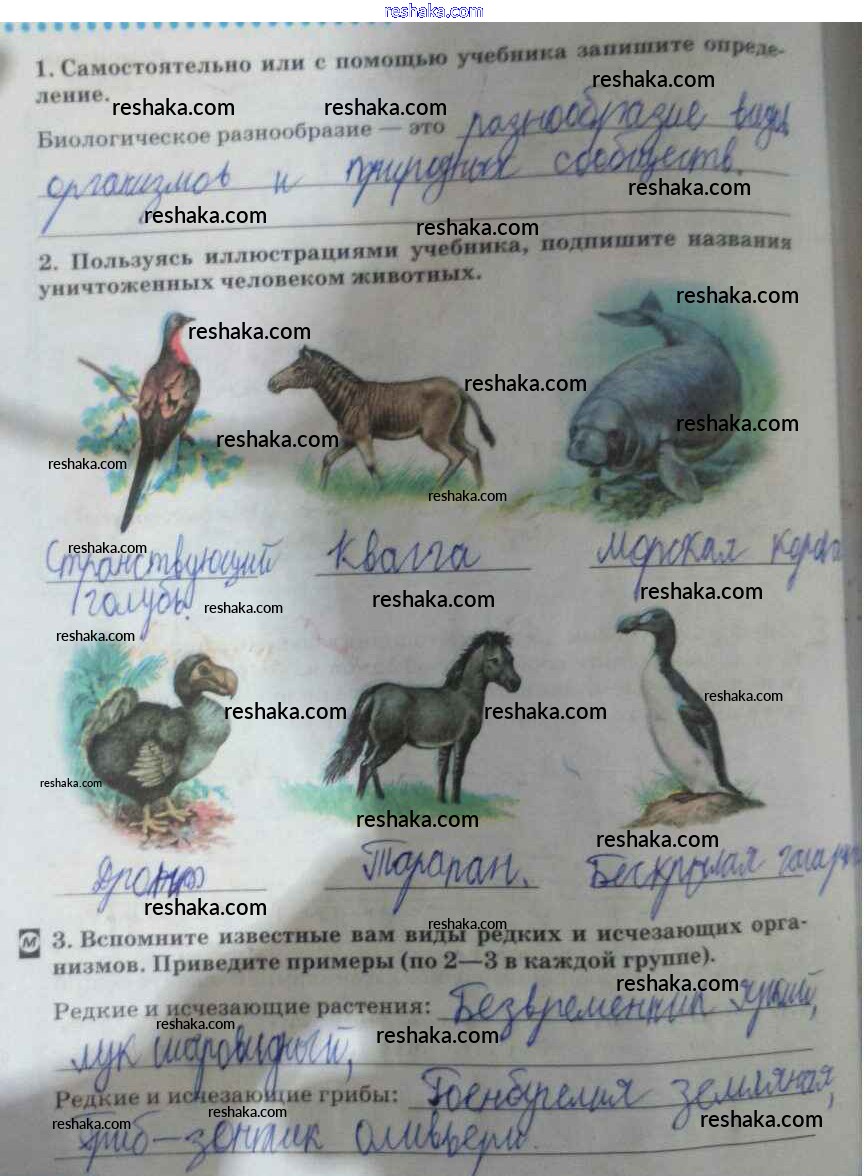 reshaka.com
1. Самостоятельно или с помощью учебника запишите опреде-
ление.
reshaka.com
reshaka.com reshaka.com
Биологическое разнообразие — это разнообразие видов
организмов и природных сообществ.
reshaka.com
reshaka.com
reshaka.com
2. Пользуясь иллюстрациями учебника, подпишите названия
уничтоженных человеком животных.
reshaka.com
reshaka.com
reshaka.com
reshaka.com
reshaka.com
reshaka.com
reshaka.com
reshaka.com
Странствующий Квагга Морская корова
голубь.
reshaka.com
reshaka.com
reshaka.com
reshaka.com
reshaka.com
reshaka.com
reshaka.com reshaka.com
reshaka.com
reshaka.com
reshaka.com
Тарапан. Бескрылая
reshaka.com
reshaka.com
М 3. Вспомните известные вам виды редких и исчезающих орга-
низмов. Приведите примеры (по 2—3 в каждой группе).
reshaka.com
Редкие и исчезающие растения: Безвременник яркий,
reshaka.com
reshaka.com
лук шаровидный,
Редкие и исчезающие грибы: Гоенбуелия земляная,
reshaka.com
reshaka.com
reshaka.com
Гриб-зонтик оливьери.